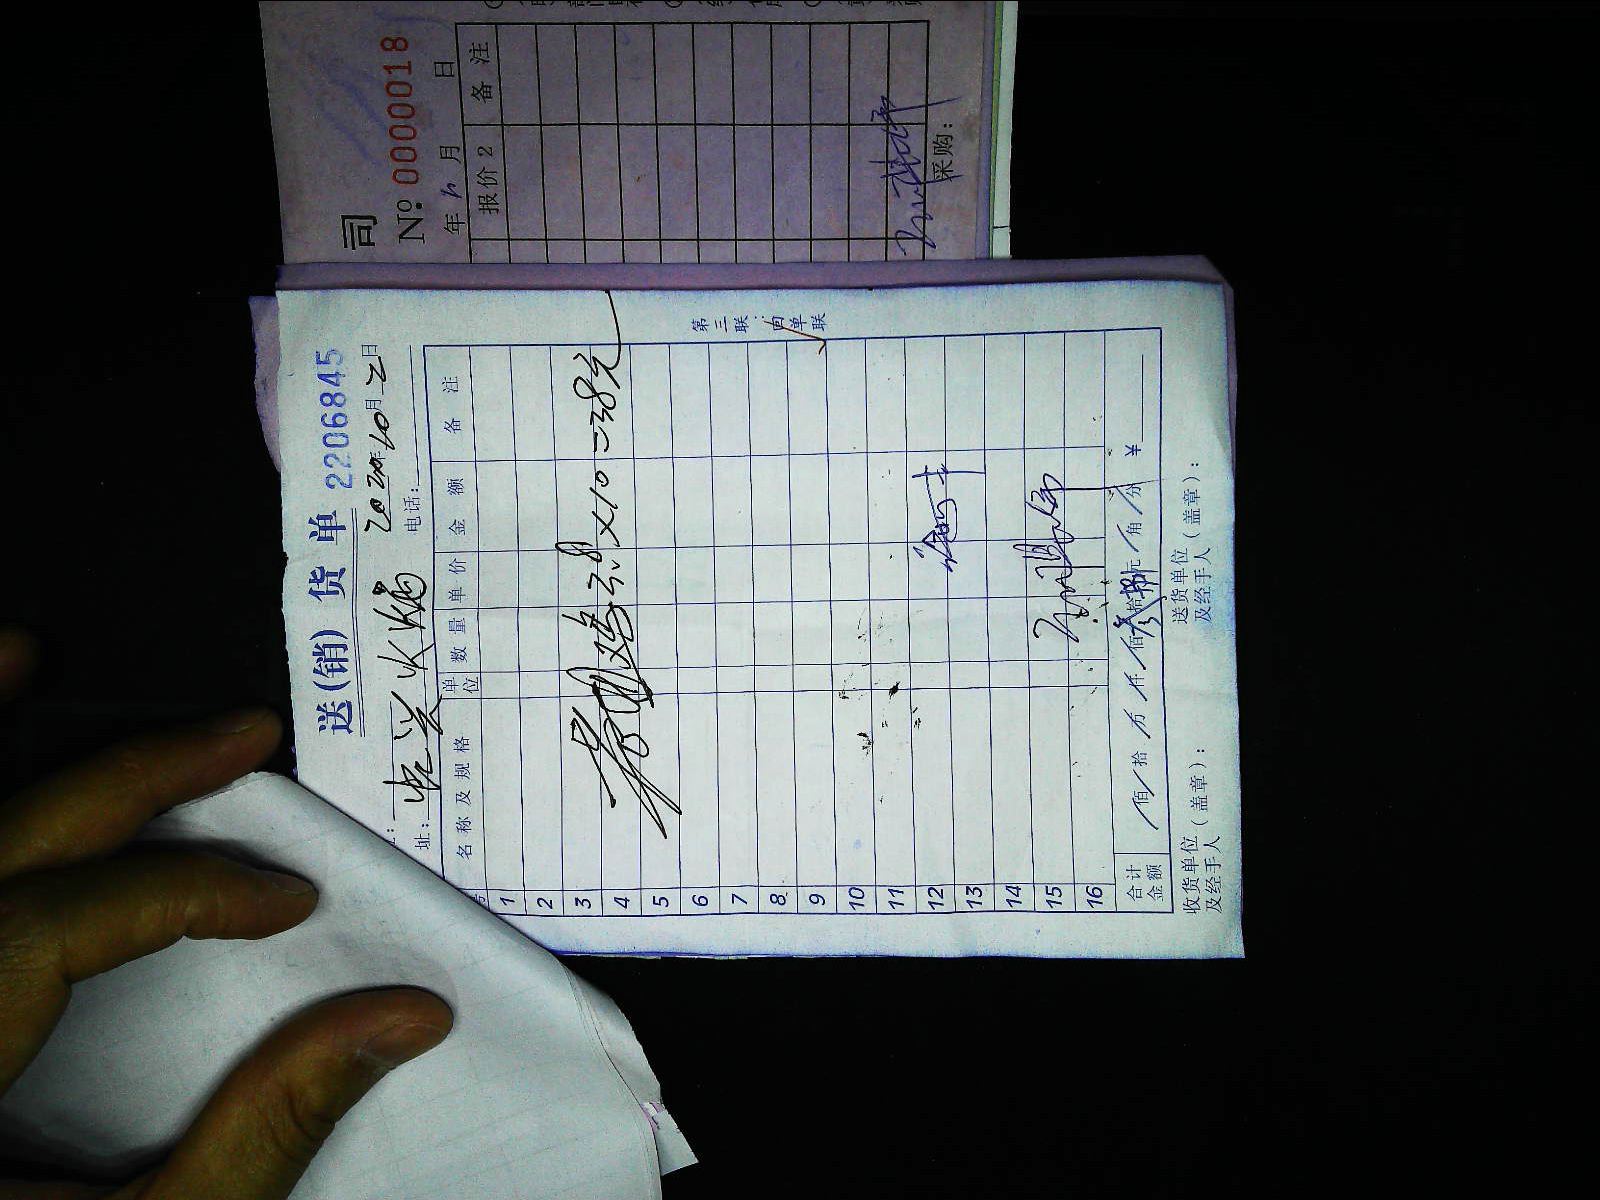 司
№ 0000018
年 月 日
报价2 备注
采购：
送(销)货单 2206845
2020年10月2日
址： 火锅
电话：
名称及规格 单位 数量 单价 金额 备注
1
2
3
3.8×10=38元
4
5
6
7
8
9
10
11
12
13
14
15
16
合计金额 佰 拾 万 仟 佰叁拾捌元 角 分 ¥
收货单位及经手人（盖章）： 送货单位及经手人（盖章）：
第三联：回单联